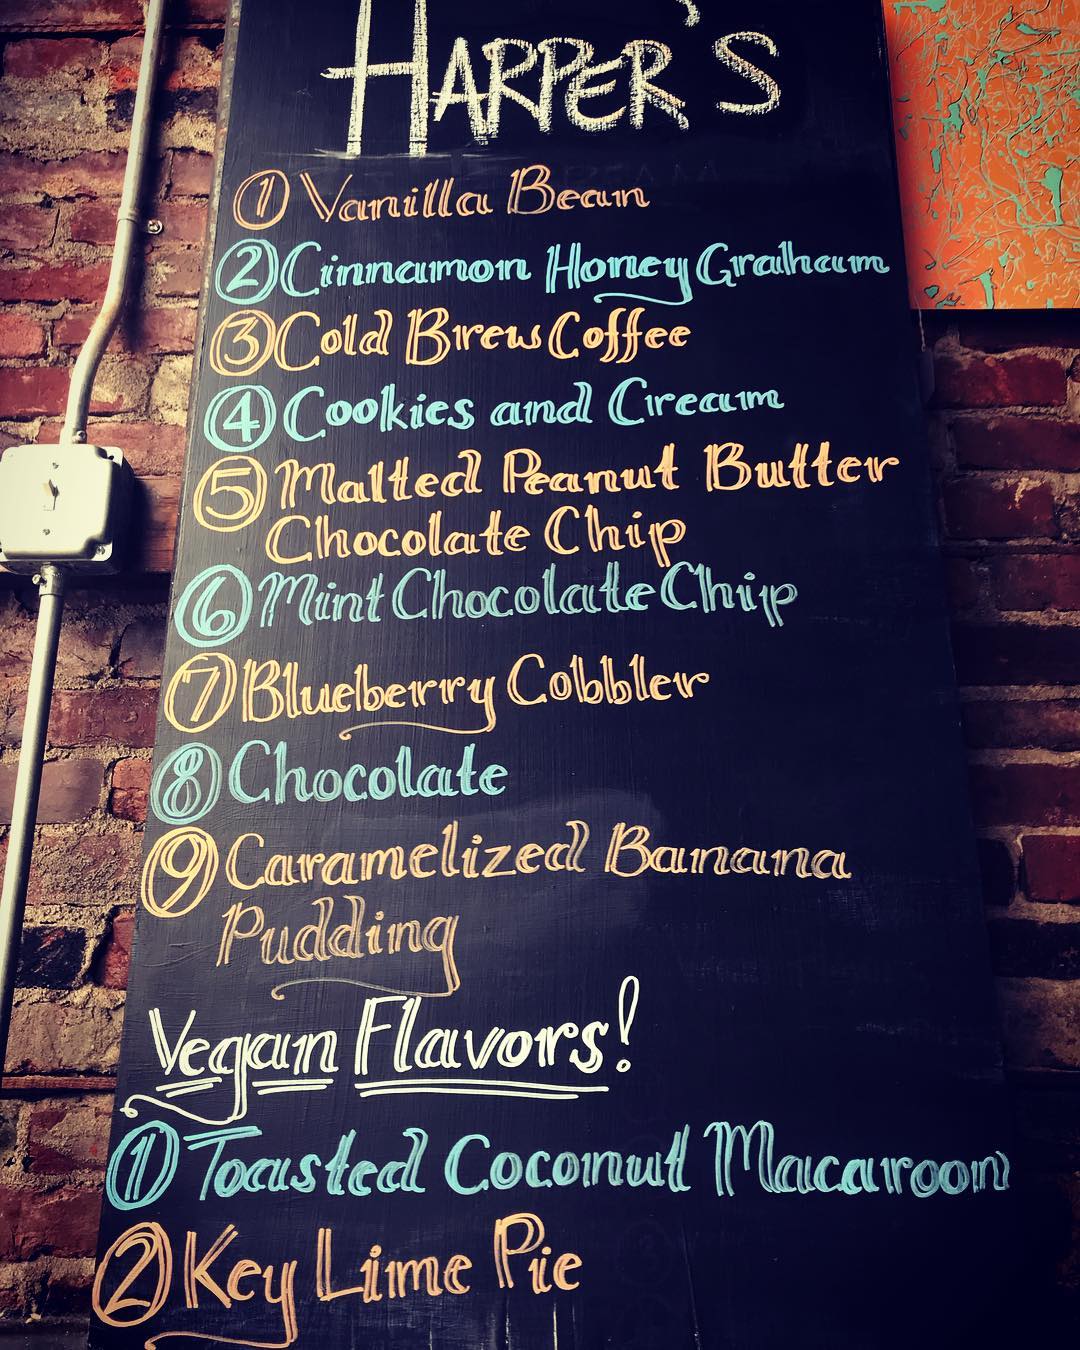 HARPER'S
① Vanilla Bean
② Cinnamon Honey Graham
③ Cold Brew Coffee
④ Cookies and Cream
⑤ Malted Peanut Butter
Chocolate Chip
⑥ Mint Chocolate Chip
⑦ Blueberry Cobbler
⑧ Chocolate
⑨ Caramelized Banana
Pudding
Vegan Flavors!
① Toasted Coconut Macaroon
② Key Lime Pie